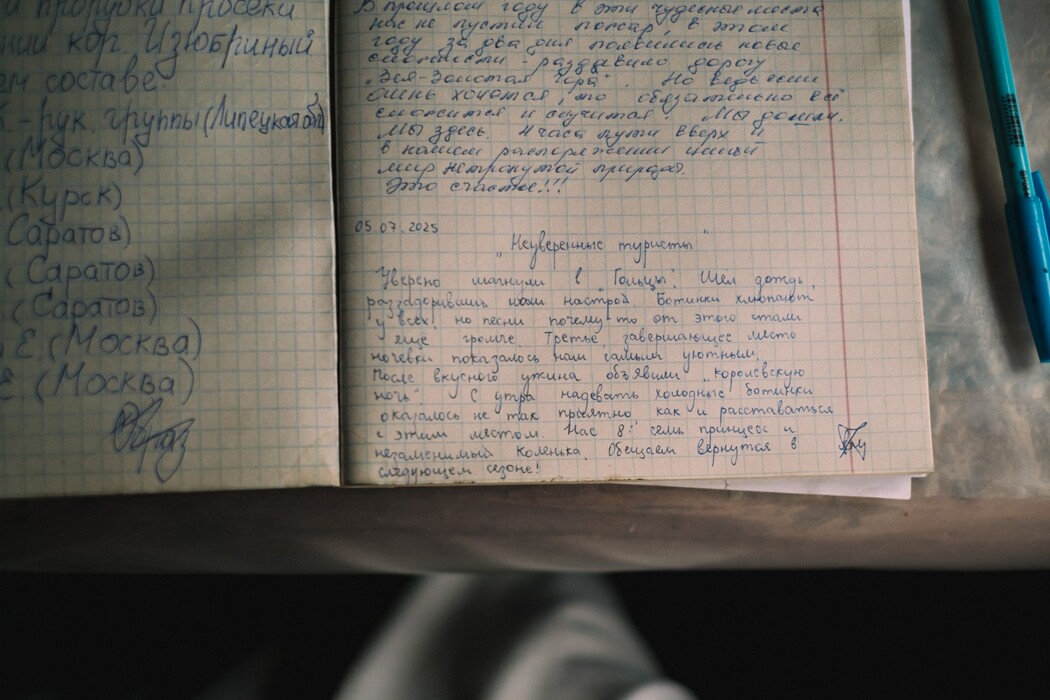 прорубки просеки
кор. Изюбриный
составе.
- рук. группы (Липецкая обл)
(Москва)
(Курск)
Саратов)
(Саратов)
(Саратов)
Е. (Москва)
Е. (Москва)
В прошлом году в эти чудесные места
нас не пустил пожар, в этом
году за два дня появились новые
сложности - раздавило дорогу
"Зея-Золотая Гора". Но ведь если
очень хочется, то обязательно всё
сложится и случится. Мы дошли.
Мы здесь. 4 часа пути вверх и
в нашем распоряжении целый
мир нетронутой природы.
Это счастье!!!
05.07.2025
"Неуверенные туристы"
Уверено шагнули в "Гольцы". Шел дождь,
раззадоривший наш настрой. Ботинки хлюпают
у всех, но песни почему-то от этого стали
еще громче. Третье, завершающее место
ночевки показалось нам самым уютным.
После вкусного ужина объявили "королевскую
ночь". С утра надевать холодные ботинки
оказалось не так приятно как и расставаться
с этим местом. Нас 8: семь принцесс и
незаменимый Коленька. Обещаем вернутся в
следующем сезоне!